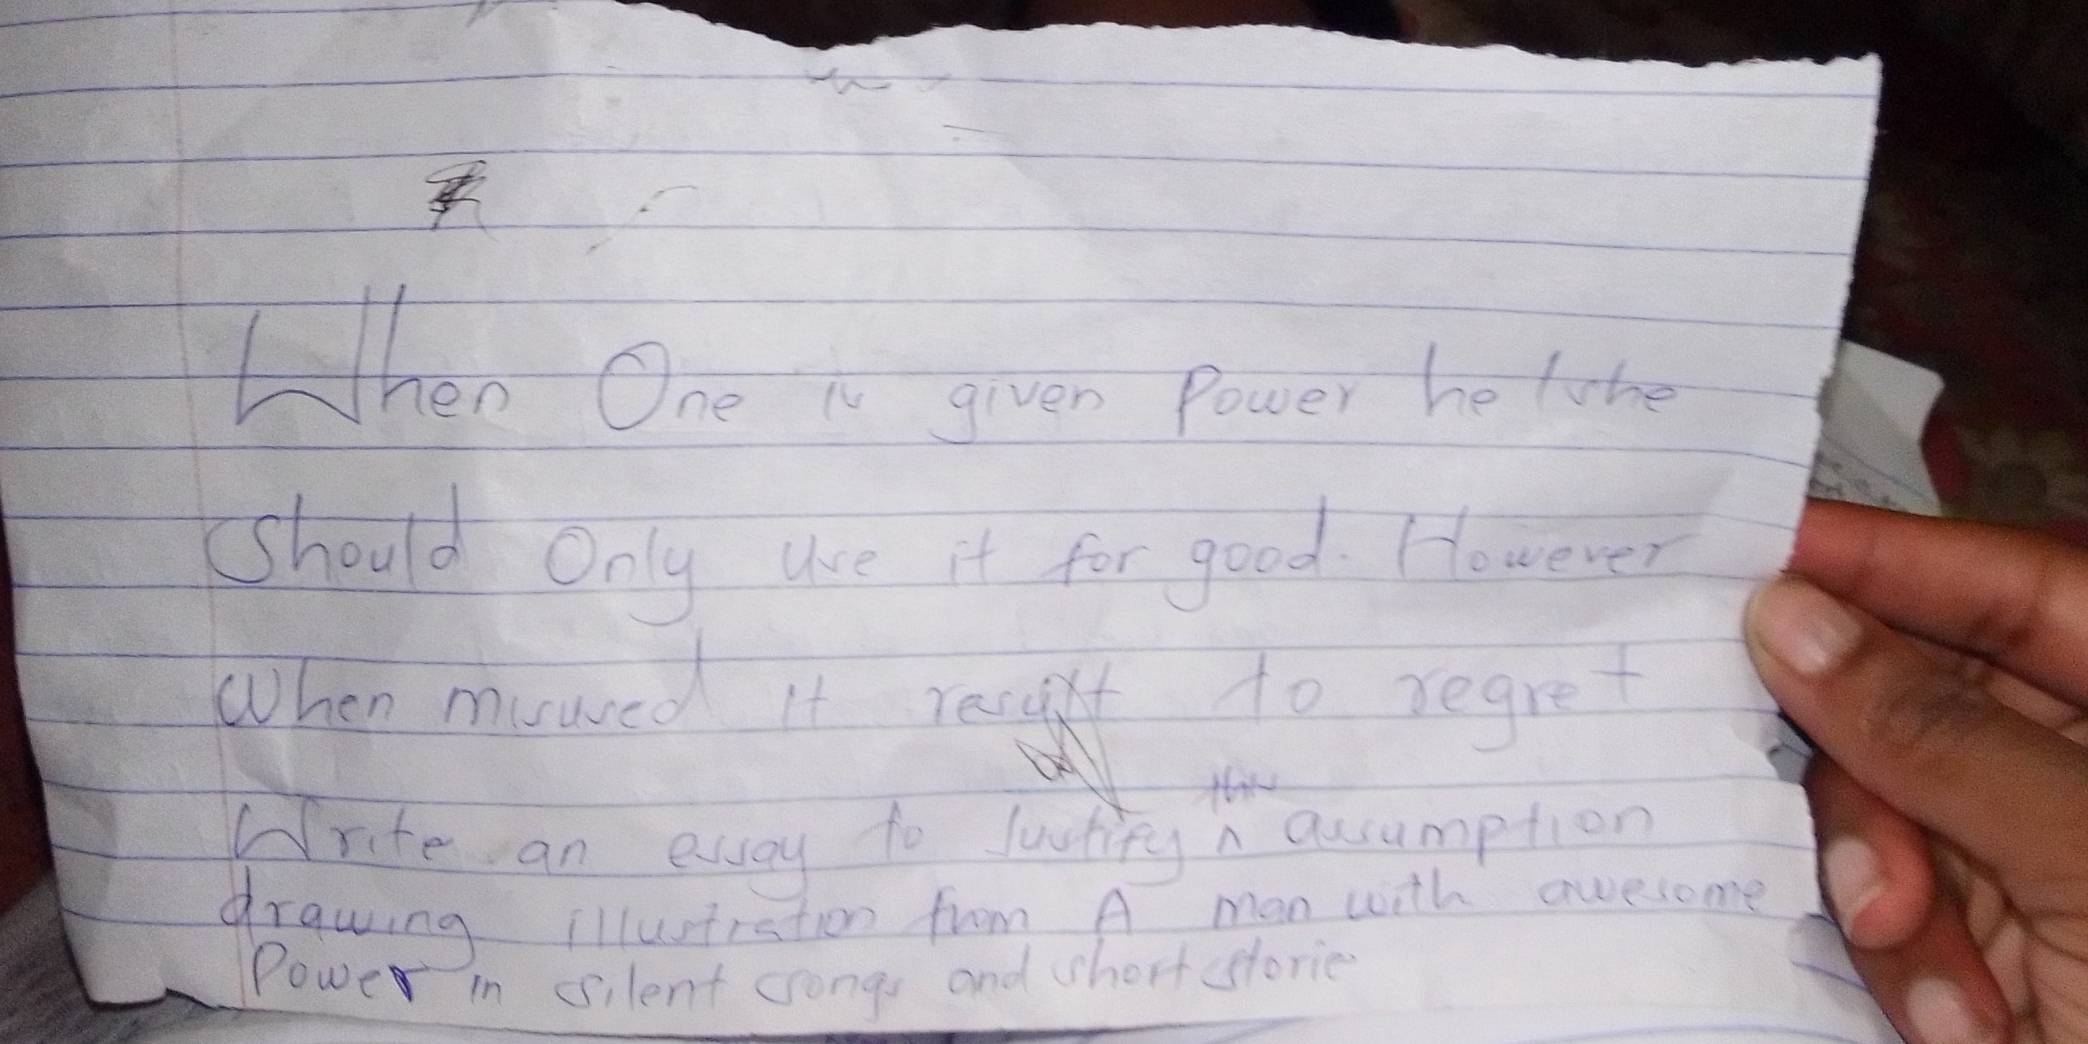 When One is given Power he/she
Should Only use it for good. However
When misused it result to regret
Write an essay to Justify this assumption
drawing illustration from A man with awesome
Power in silent songs and short storie